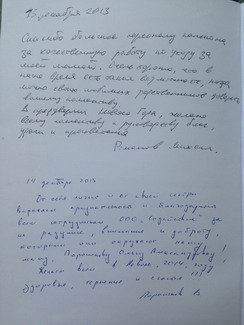 15 декабря 2013
Спасибо большое персоналу компании
за качественную работу по уходу за
моей мамой. Очень хорошо, что в
наше время есть такая возможность, когда
можно своих любимых родственников доверить
вашему коллективу.
В преддверии Нового Года, желаю
всему коллективу и руководству благ,
удачи и процветания
14 декабря 2013
От себя лично и от своей сестры
выражаю признательность и благодарность
всем сотрудникам ООО за
их радушие, внимание и доброту,
которыми они окружают нашу
маму.
Желаем всем в Новом, 2014 году
здоровья, терпения и счастья!!!